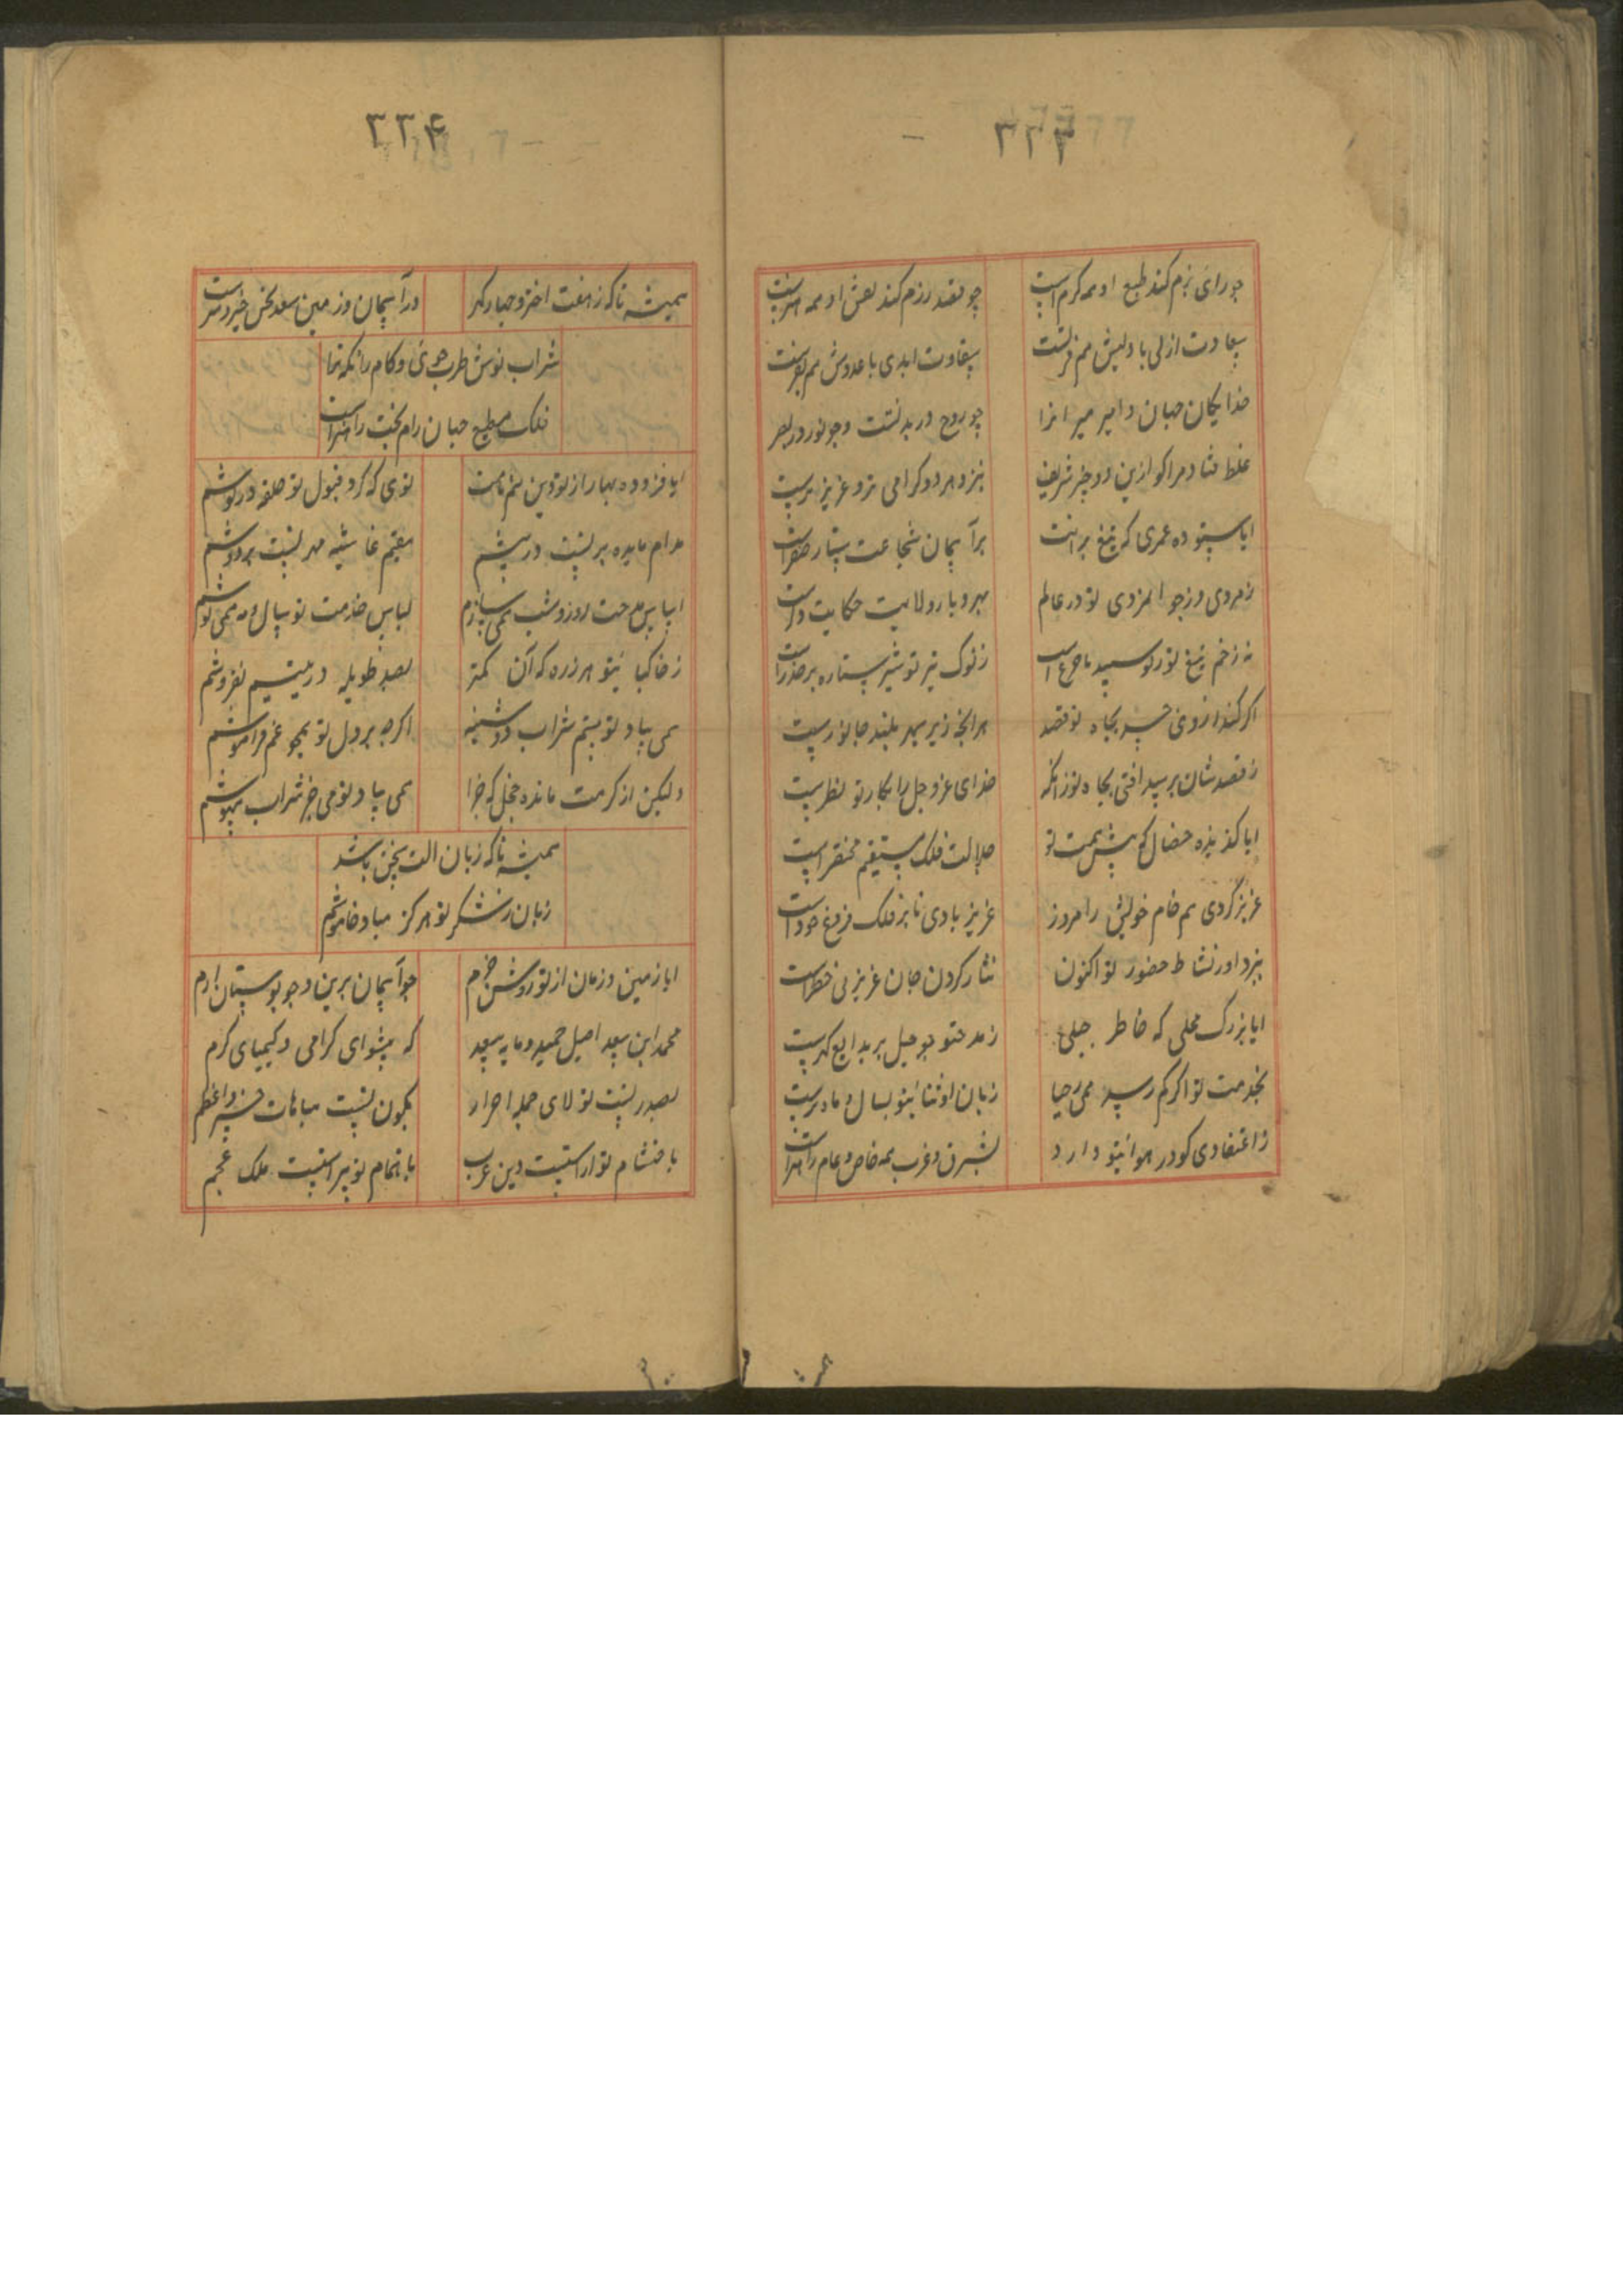 ۲۲۳
چو رای بزم کند طبع او همه کرم است
چو قصد رزم کند لفظ او همه
سعادت ازلی با ولیش هم
شقاوت ابدی با عدوش هم
خدایکان جهان و امیر میر انرا
چو روح در بدنست و چو نور در بصر
غلط فتاد مرا کو ازین دو چیز شریف
بنزد هر دو کرامی تر و عزیز ترست
ایا ستوده عمری که تیغ
بر آسمان شجاعت ستاره
ز مردی و ز جوانمردی تو در عالم
بهر دیار و ولایت حکایت
نه زخم تیغ تو
ز نوک تیر تو شیر ستاره بر حذر است
اکر کند ز روی حسد بجاه تو قصد
هر انچه زیر سپهر بلند جانورست
ز قصدشان نرسد افتی بجاه تو زانکه
خدای عز و جل را بکار تو نظرست
ایا کزیده خصال که پیش همت تو
جلالت فلک مستقیم مختصر است
عزیز کردی هم نام خویش را امروز
عزیز بادی تا بر فلک فروغ خور است
بنزد او ز نشاط حضور تو اکنون
نثار کردن جان عزیز بی خطر است
ایا بزرک محلی که خاطر جبلی
ز مدحتو چو جبل پر بدایع کهرست
بخدمت تو اکر کم رسد همی ز حیا
زبان او ثنا یتو بسال و ماه ترست
ز اعتقادی کو در هوا یتو دارد
بشرق و غرب همه خاص و عام را خبر است
۲۲۴
همیشه تا که ز هفت اختر و چهار کهر
در آسمان و زمین سعد و نحس و خیر و شرست
شراب نوش و طرب جوی و کام ران که ترا
فلک مطیع و جهان رام و بخت راهبر است
ایا فزوده بها از تو دین
توی که کرد قبول تو حلقه در کوشم
مدام مایده بر تست در پیشم
مقیم غاشیه مهر تست بر دوشم
اساس مدحت روز و شب همی سازم
لباس خدمت تو سال و مه همی پوشم
ز خاک پایتو هر ذره که آن کمتر
بصد طویله در یتیم نفروشم
همی بیاد تو بینم شراب دوشینه
اکرچه بر دل تو همچو غم فراموشم
ولیکن از کرمت مانده خجل که چرا
همی بیاد تو می جز شراب
همیشه تا که زبان الت سخن باشد
زبان ز شکر تو هرکز مباد خاموشم
ایا زمین و زمان از تو روشن و خرم
چو آسمان برین و چو بوستان ارم
محمد ابن سعید اصیل حمید و مایه سعد
که پیشوای کرامی و کیمیای کرم
بصدر تست تولای جمله احرار
بکون تست مباهات خسرو اعظم
باحتشام تو اراستست دین عرب
باهتمام تو پیراستست ملک عجم